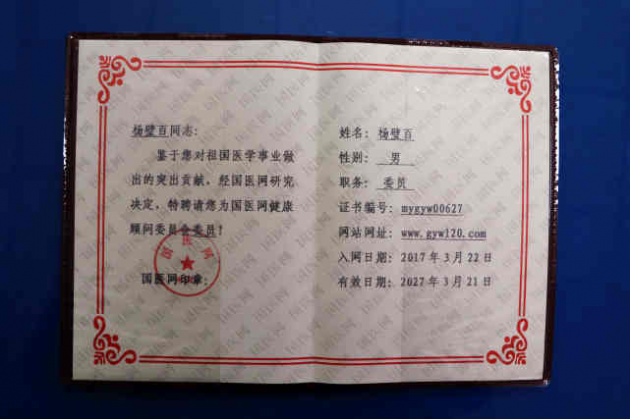 杨壁百同志:
鉴于您对祖国医学事业做
出的突出贡献,经国医网研究
决定,特聘请您为国医网健康
顾问委员会委员!
国医网
国医网印章:
姓名: 杨壁百
性别: 男
职务: 委员
证书编号: mygyw00627
网站网址: www.gyw120.com
入网日期: 2017年3月22日
有效日期: 2027年3月21日